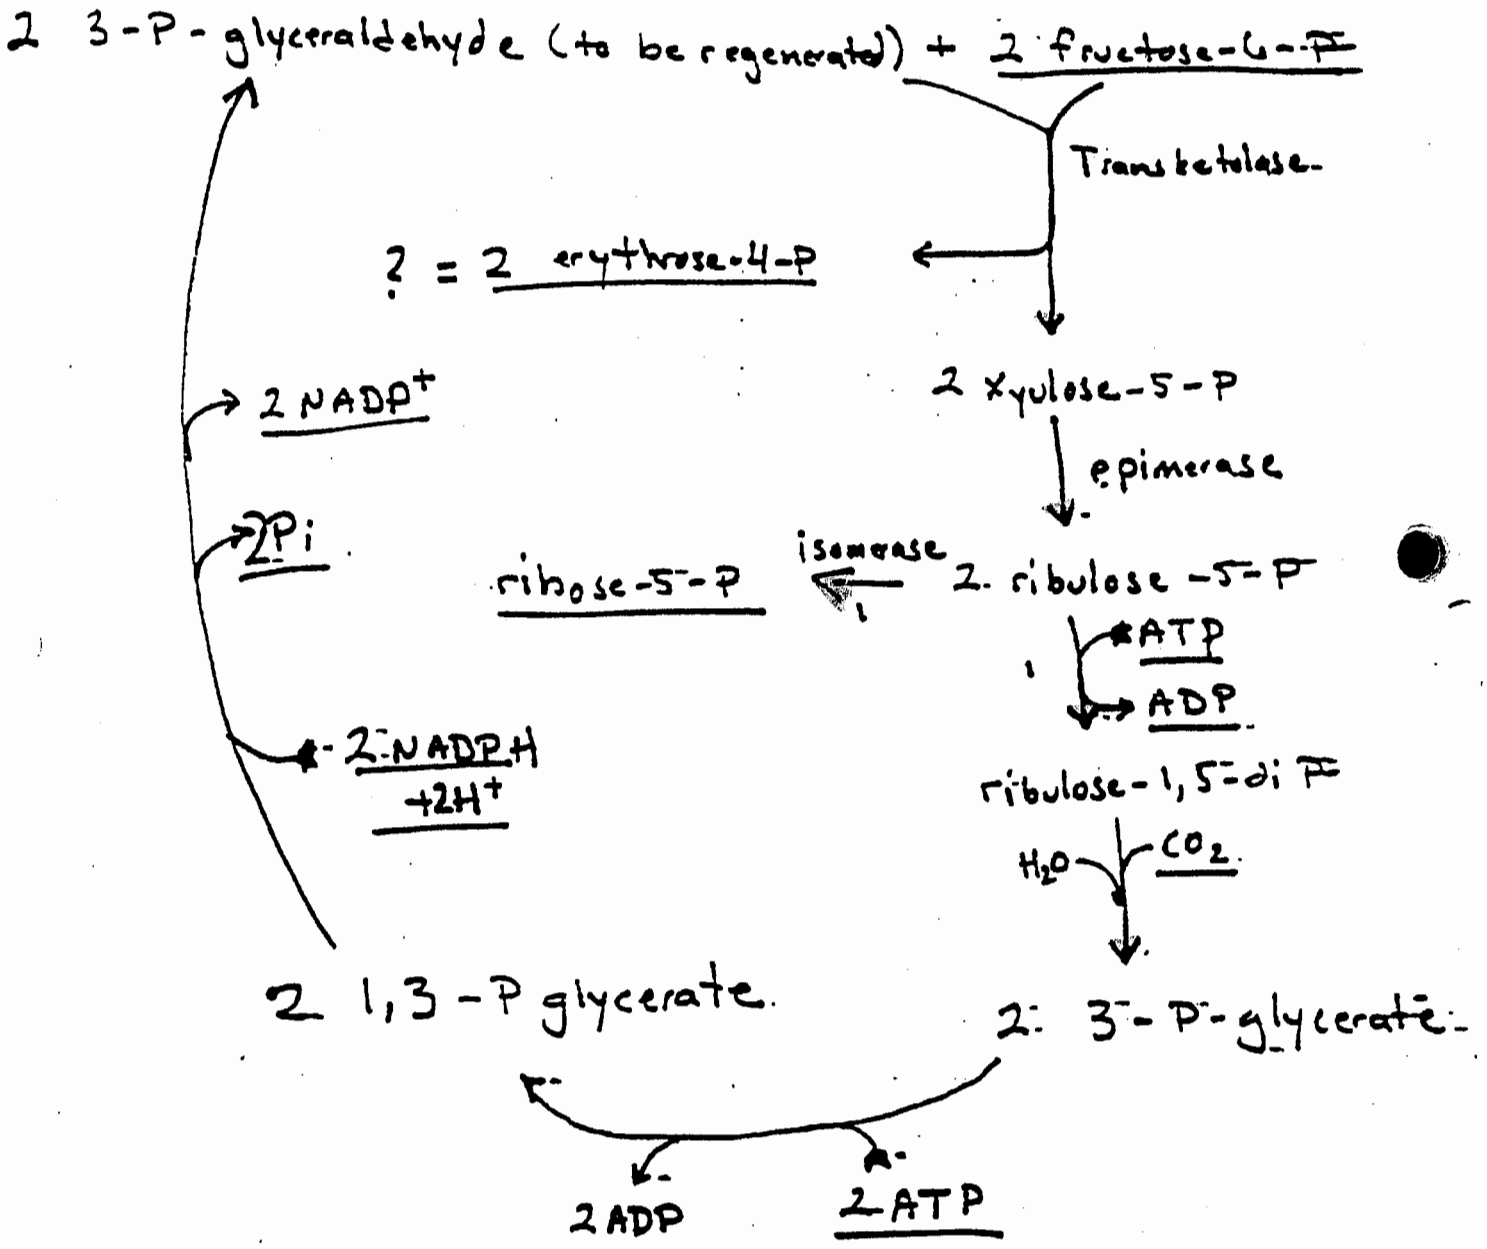 2 3-P-glyceraldehyde (to be regenerated) + 2 fructose-6-P
Transketolase
? = 2 erythrose-4-P
2 NADP+
2 Xyulose-5-P
epimerase
2Pi
isomerase
ribose-5-P
2. ribulose-5-P
ATP
ADP
2 NADPH
+2H+
ribulose-1,5-di P
H2O
CO2
2 1,3-P glycerate.
2 3-P-glycerate
2 ADP
2 ATP